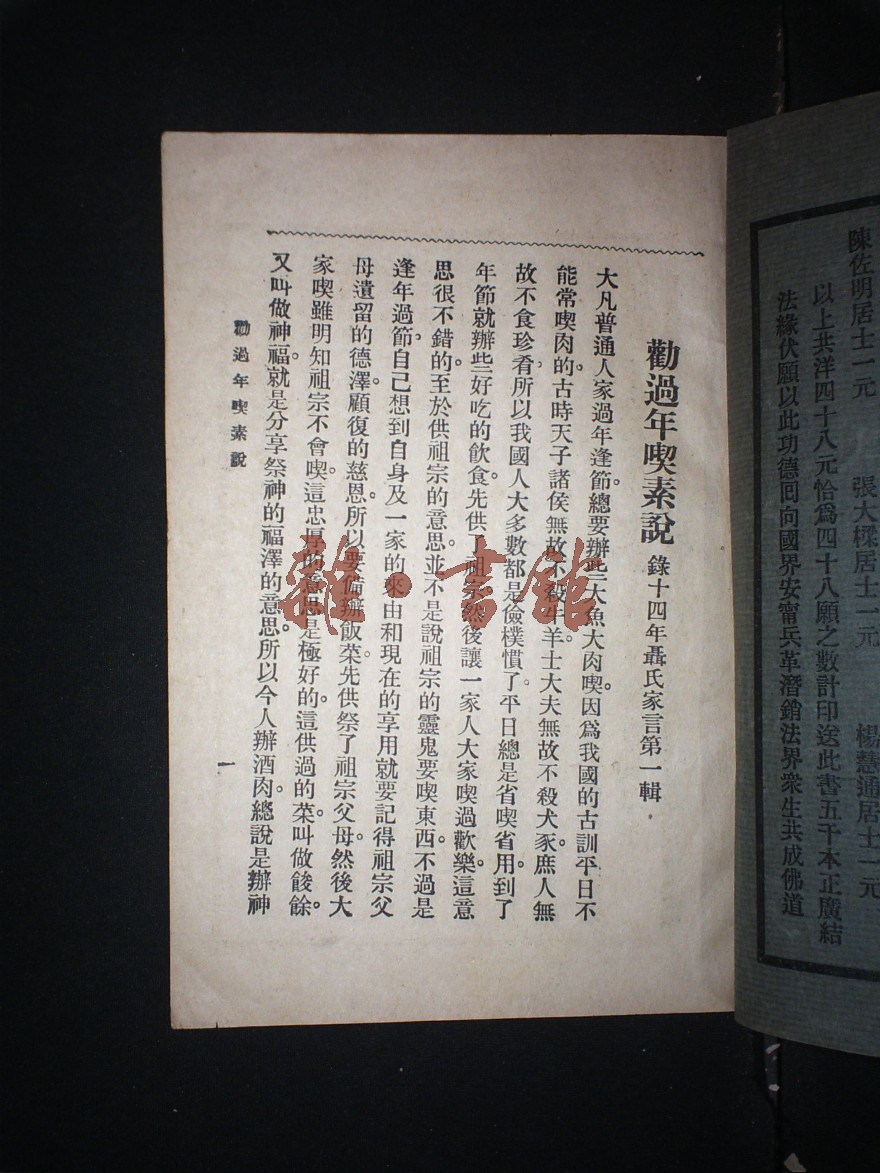 陳佐明居士一元　張大樑居士一元　楊慧通居士一元
以上共洋四十八元恰爲四十八願之數計印送此書五千本正廣結
法緣伏願以此功德囘向國界安甯兵革潛銷法界衆生共成佛道
勸過年喫素說 錄十四年聶氏家言第一輯
大凡普通人家過年逢節。總要辦些大魚大肉喫。因爲我國的古訓平日不
能常喫肉的古時天子諸侯無故不殺牛羊。士大夫無故不殺犬豕。庶人無
故不食珍肴。所以我國人大多數都是儉樸慣了。平日總是省喫省用。到了
年節就辦些好吃的飲食。先供了祖宗。然後讓一家人大家喫過歡樂。這意
思很不錯的。至於供祖宗的意思。並不是說祖宗的靈鬼要喫東西。不過是
逢年過節。自己想到自身及一家的來由和現在的享用。就要記得祖宗父
母遺留的德澤。顧復的慈恩。所以要備辦飯菜。先供祭了祖宗父母。然後大
家喫。雖明知祖宗不會喫。這忠厚的意思是極好的。這供過的菜。叫做餕餘。
又叫做神福。就是分享祭神的福澤的意思。所以今人辦酒肉。總說是辦神
勸過年喫素說
一
雜·書館